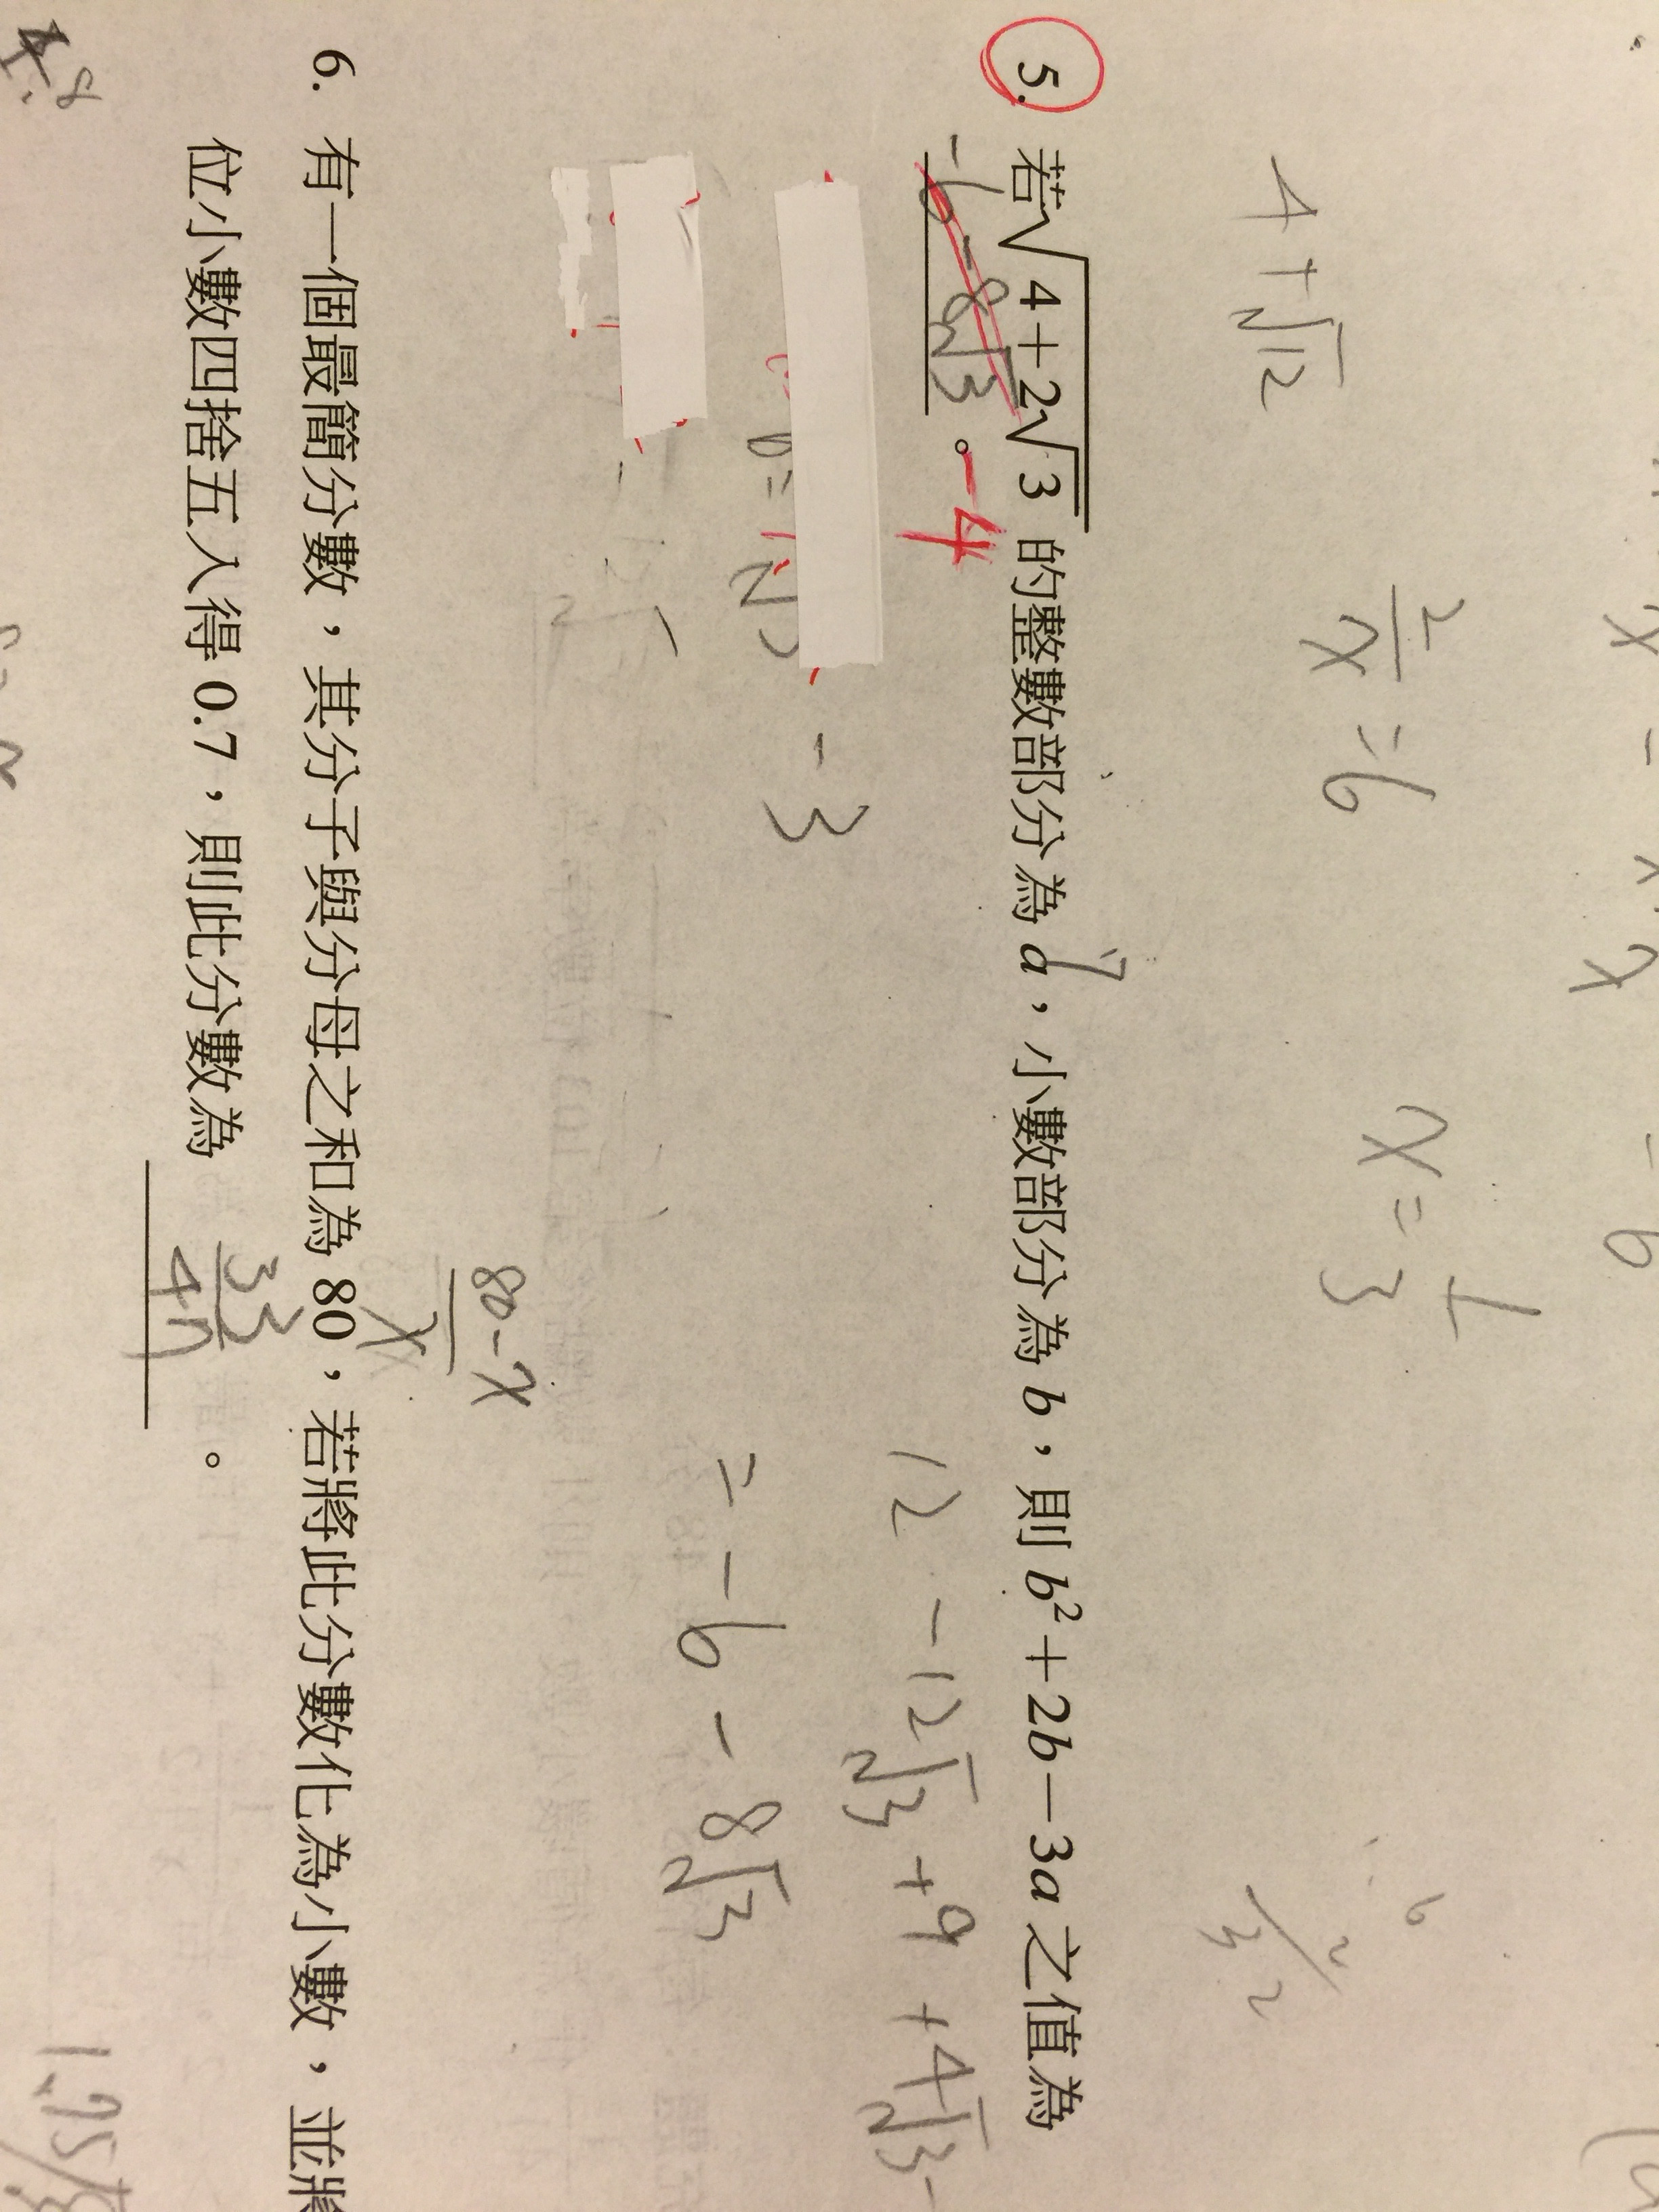 4+√12
2/x = 6
x = 1/3
5. 若√(4+2√3) 的整數部分為 a，小數部分為 b，則 b²+2b－3a 之值為
-6-8√3 。 -4
12 -12√3 +9 +4√3 -
- 3
= -6 - 8√3
80-x
x
6. 有一個最簡分數，其分子與分母之和為 80，若將此分數化為小數，並將
位小數四捨五入得 0.7，則此分數為 33/47 。